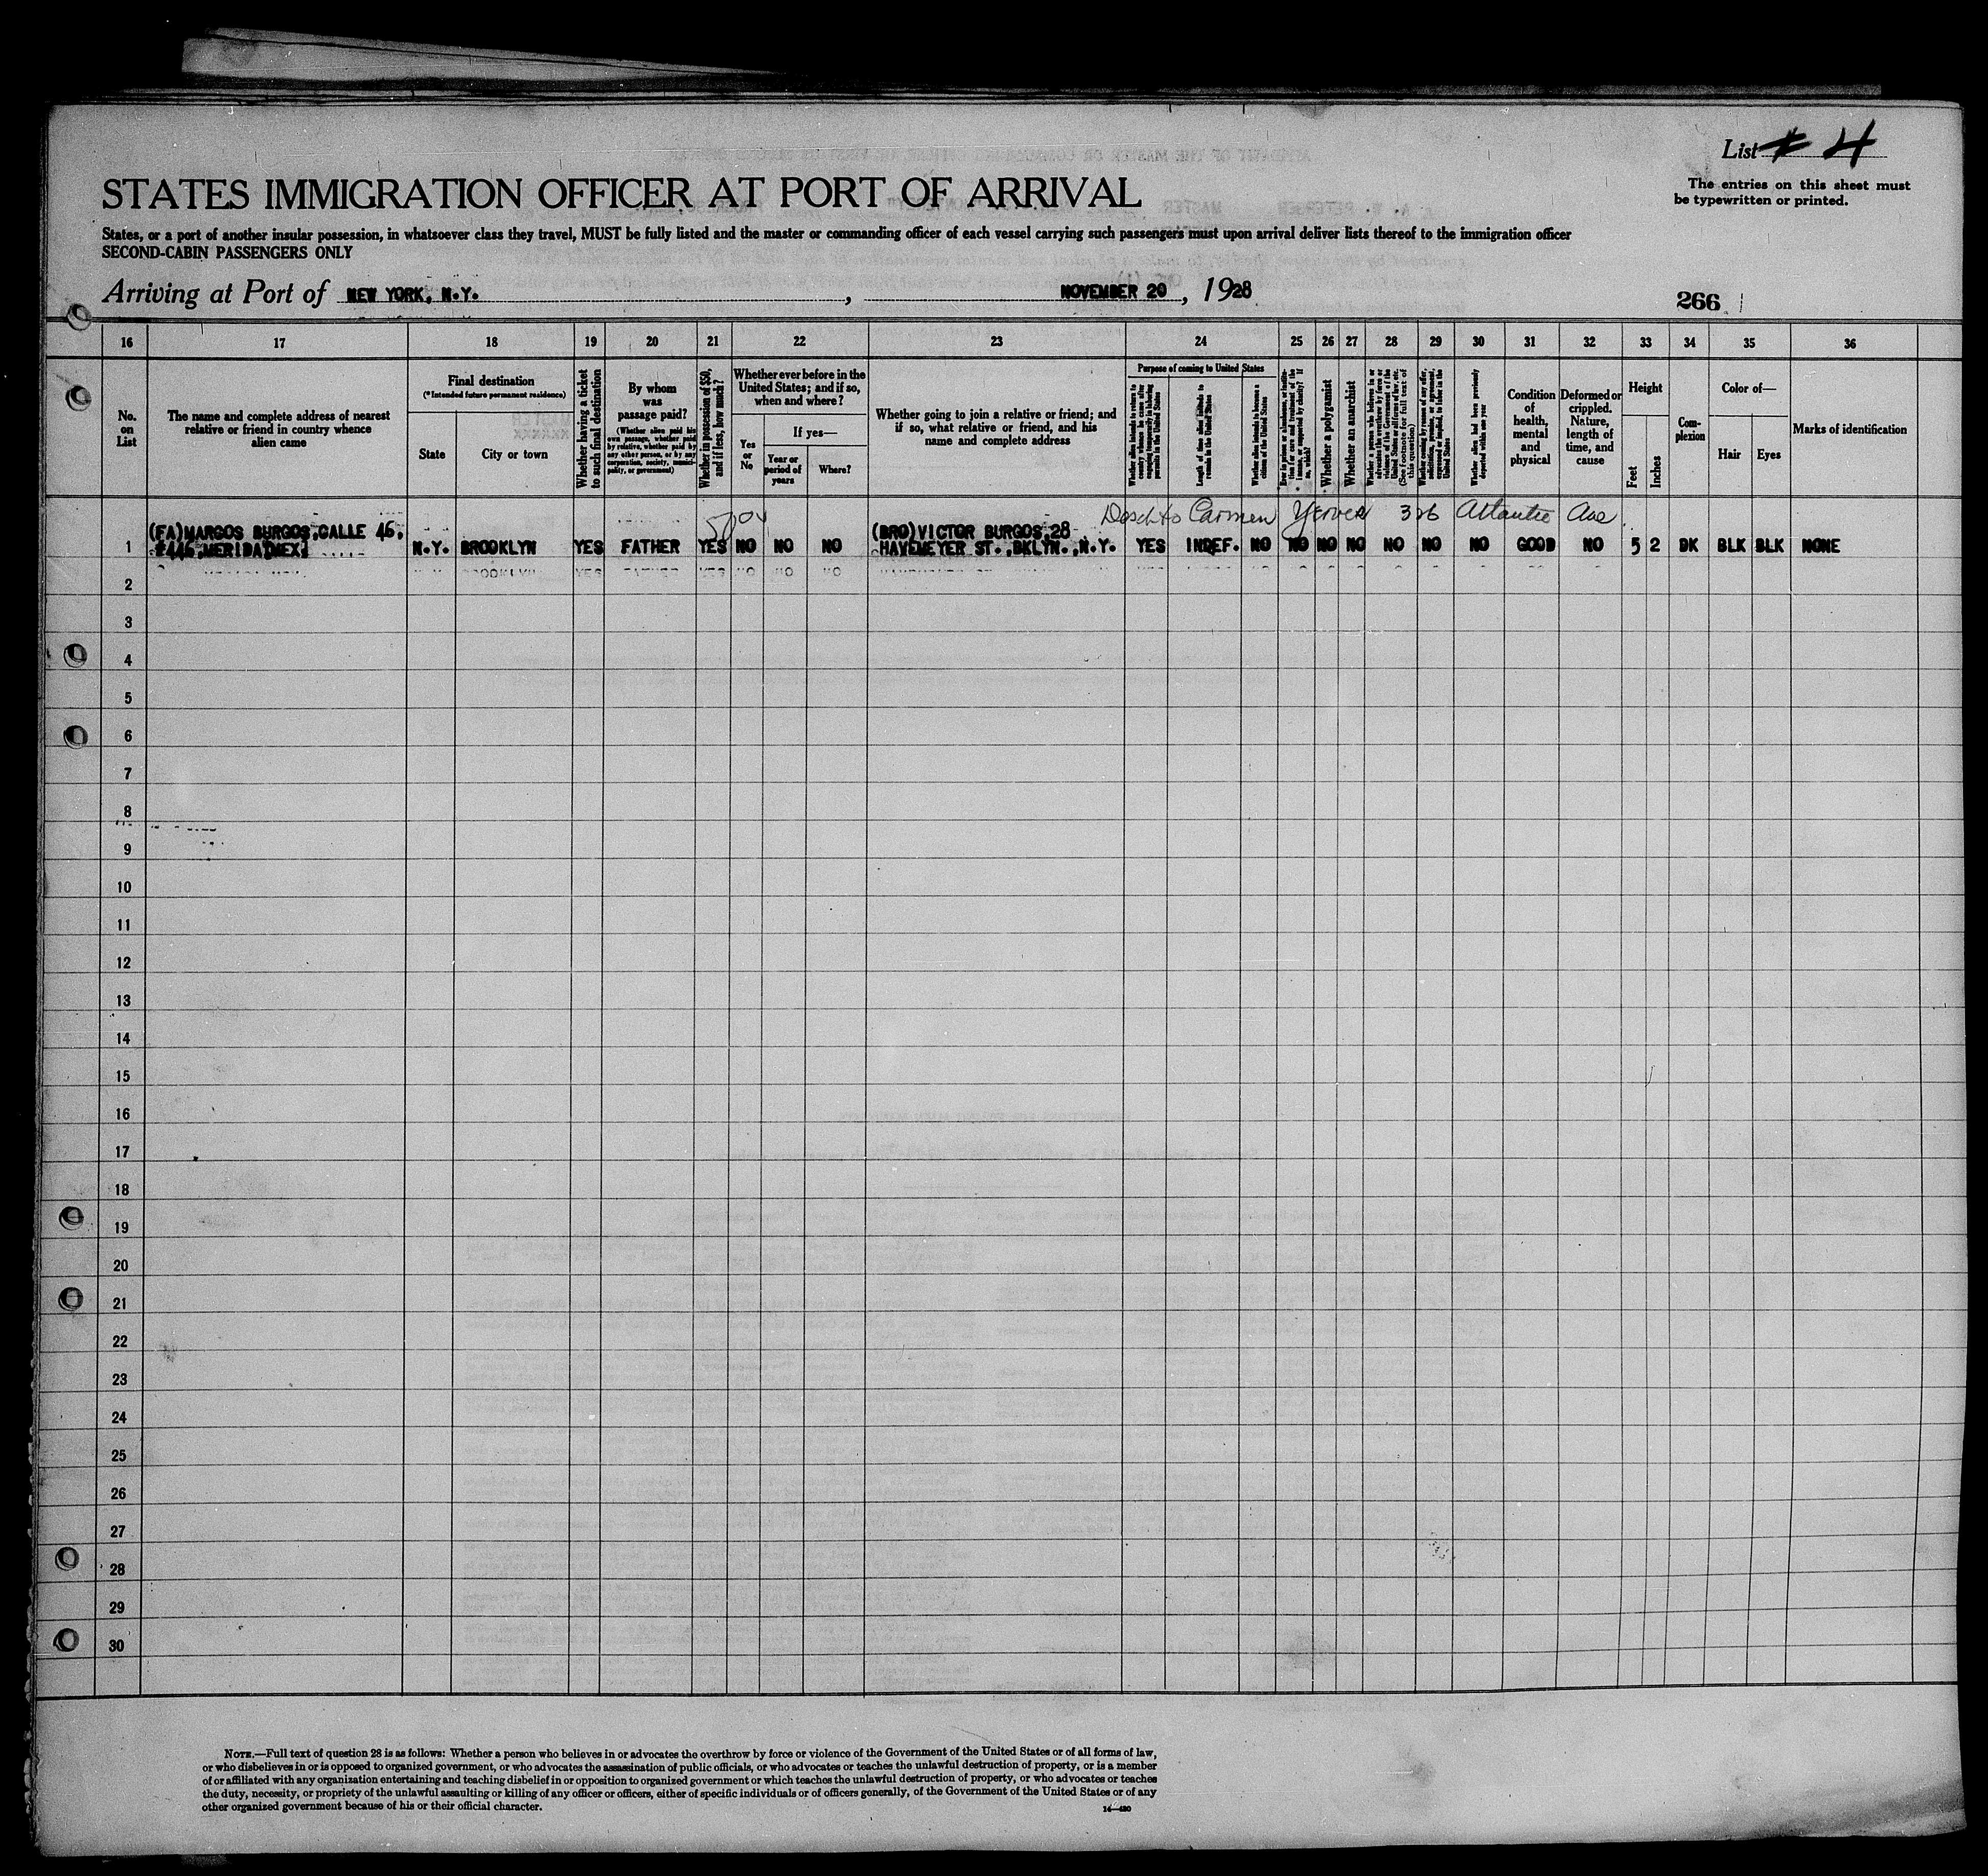 List 4
The entries on this sheet must
be typewritten or printed.
STATES IMMIGRATION OFFICER AT PORT OF ARRIVAL
States, or a port of another insular possession, in whatsoever class they travel, MUST be fully listed and the master or commanding officer of each vessel carrying such passengers must upon arrival deliver lists thereof to the immigration officer
SECOND-CABIN PASSENGERS ONLY
Arriving at Port of NEW YORK, N.Y. , NOVEMBER 20 , 1928
266
16 17 18 19 20 21 22 23 24 25 26 27 28 29 30 31 32 33 34 35 36
No. on List
The name and complete address of nearest relative or friend in country whence alien came
Final destination
(*Intended future permanent residence)
State
City or town
Whether having a ticket to such final destination
By whom was passage paid?
(Whether alien paid his own passage, whether paid by relative, whether paid by any other person, or by any corporation, society, municipality, or government)
Whether in possession of $50, and if less, how much?
Whether ever before in the United States; and if so, when and where?
Yes or No
If yes—
Year or period of years
Where?
Whether going to join a relative or friend; and if so, what relative or friend, and his name and complete address
Purpose of coming to United States
Whether alien intends to return to country whence he came after engaging temporarily in laboring pursuits in the United States
Length of time alien intends to remain in the United States
Whether alien intends to become a citizen of the United States
Whether a polygamist
Whether an anarchist
Whether a person who believes in or advocates the overthrow by force or violence of the Government of the United States or all forms of law, etc. (See footnote for full text of this question)
Whether alien had been previously deported within one year
Condition of health, mental and physical
Deformed or crippled. Nature, length of time, and cause
Height
Feet
Inches
Complexion
Color of—
Hair
Eyes
Marks of identification
Carmen 326 Atlantic Ave
(FA)MARGOS BURGOS,CALLE 46, (BRO)VICTOR BURGOS,28
1 #446,MERIDA,MEX. N.Y. BROOKLYN YES FATHER YES NO NO NO HAVEMEYER ST.,BKLYN.,N.Y. YES INDEF. NO NO NO NO NO NO NO GOOD NO 5 2 DK BLK BLK NONE
2
3
4
5
6
7
8
9
10
11
12
13
14
15
16
17
18
19
20
21
22
23
24
25
26
27
28
29
30
NOTE.—Full text of question 28 is as follows: Whether a person who believes in or advocates the overthrow by force or violence of the Government of the United States or of all forms of law,
or who disbelieves in or is opposed to organized government, or who advocates the assassination of public officials, or who advocates or teaches the unlawful destruction of property, or is a member
of or affiliated with any organization entertaining and teaching disbelief in or opposition to organized government or which teaches the unlawful destruction of property, or who advocates or teaches
the duty, necessity, or propriety of the unlawful assaulting or killing of any officer or officers, either of specific individuals or of officers generally, of the Government of the United States or of any
other organized government because of his or their official character.
14—480